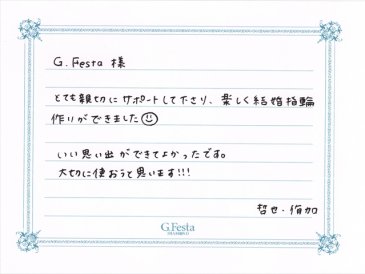 G.Festa 様
とても親切にサポートして下さり、楽しく結婚指輪
作りができました
いい思い出ができてよかったです。
大切に使おうと思います!!!
哲也・侑加
G.Festa